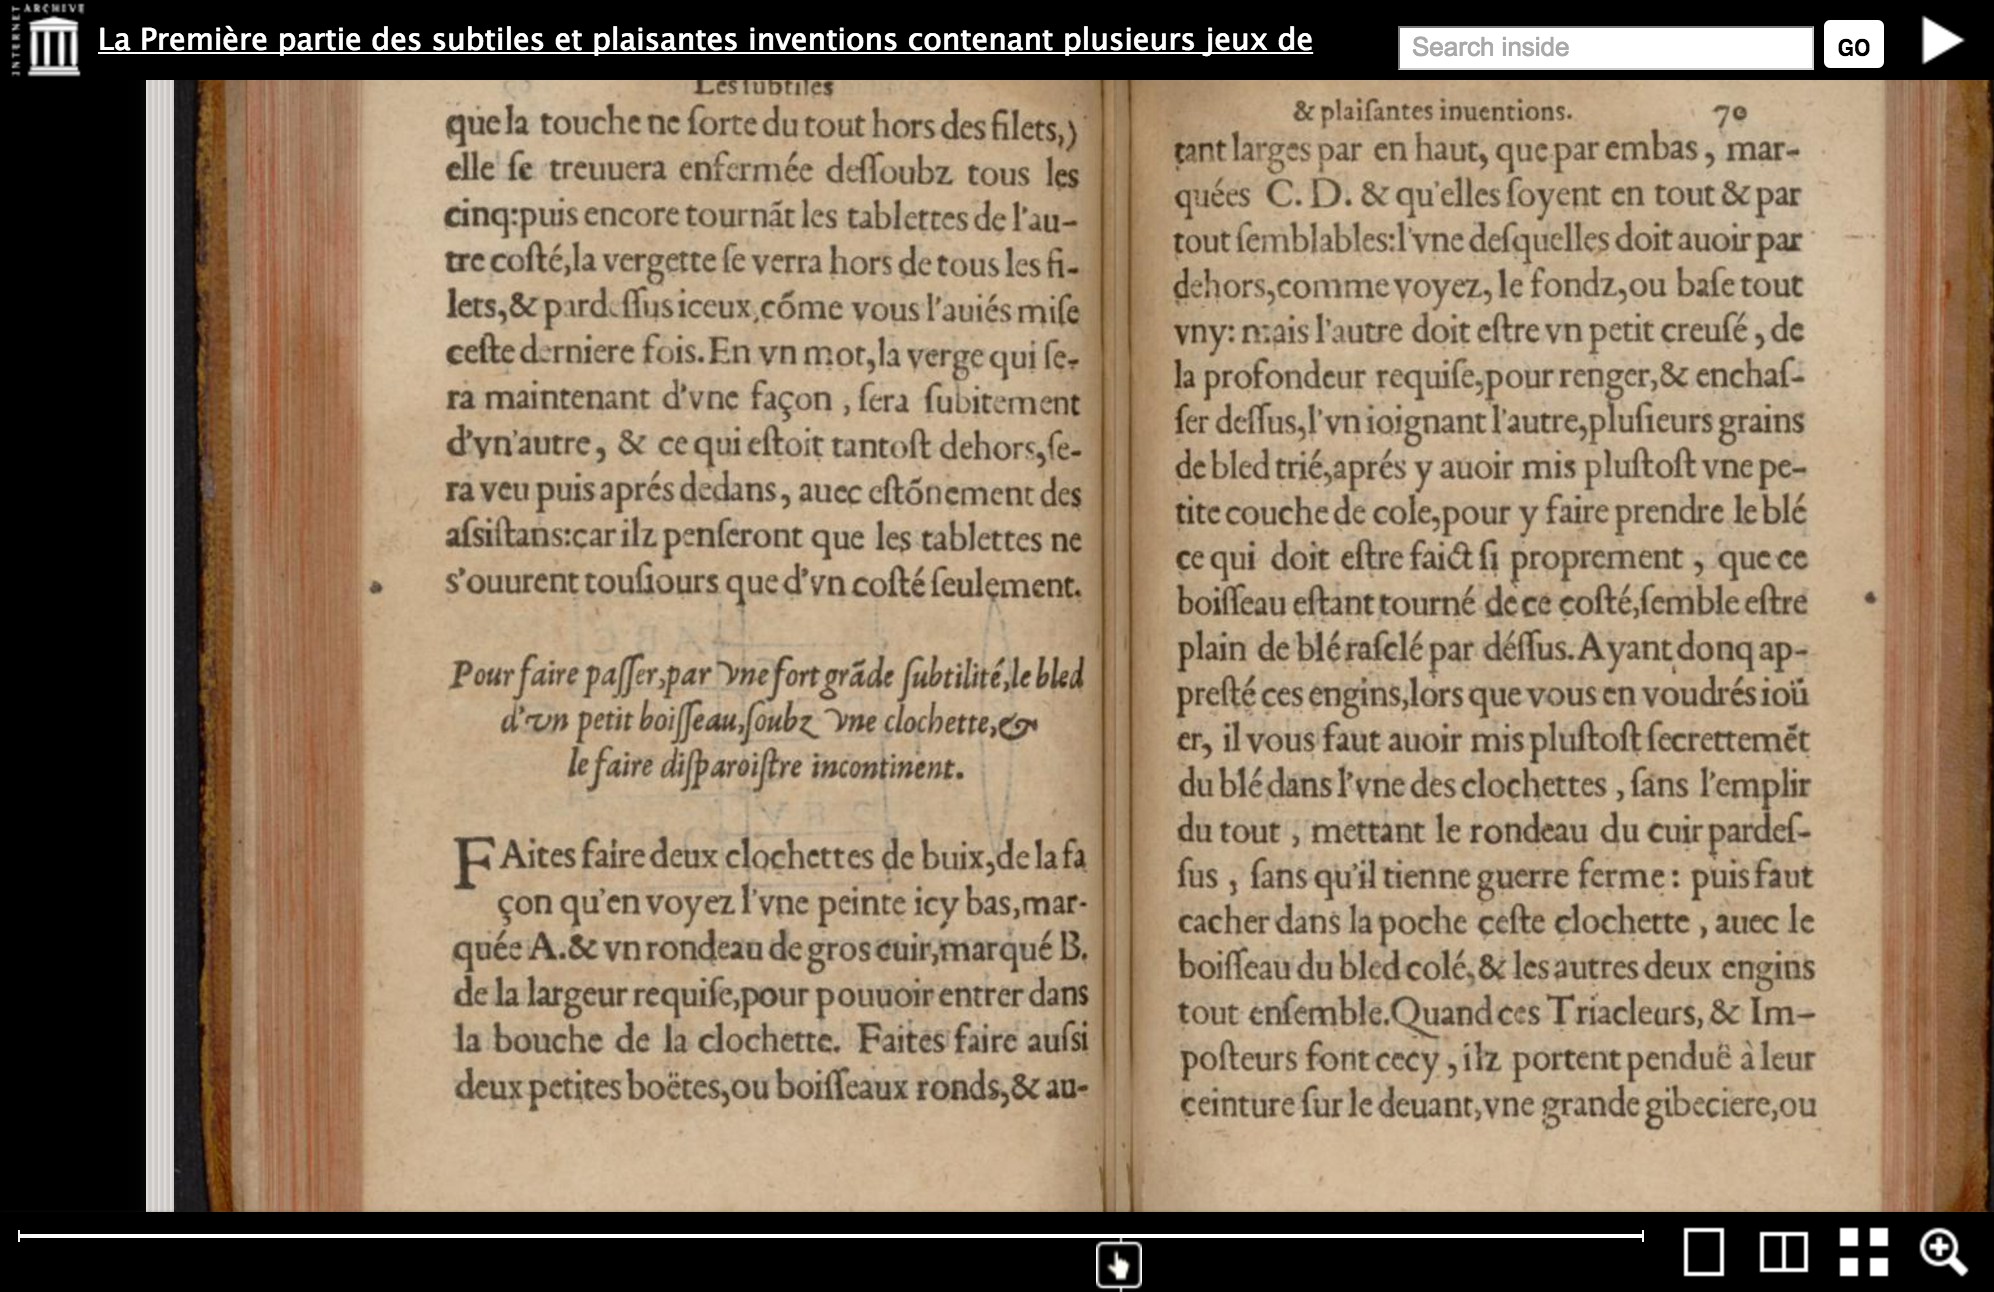 INTERNET ARCHIVE
La Première partie des subtiles et plaisantes inventions contenant plusieurs jeux de
Search inside
GO
Les ſubtiles
que la touche ne ſorte du tout hors des filets,)
elle ſe treuuera enfermée deſſoubz tous les
cinq:puis encore tournãt les tablettes de l'au-
tre coſté,la vergette ſe verra hors de tous les fi-
lets,& pardeſſus iceux,cõme vous l'auiés miſe
ceſte derniere fois.En vn mot,la verge qui ſe-
ra maintenant d'vne façon , ſera ſubitement
d'vn'autre, & ce qui eſtoit tantoſt dehors,ſe-
ra veu puis aprés dedans, auec eſtõnement des
aſsiſtans:car ilz penſeront que les tablettes ne
s'ouurent touſiours que d'vn coſté ſeulement.
Pour faire paſſer,par vne fort grãde ſubtilité,le bled
d'vn petit boiſſeau,ſoubz vne clochette,&
le faire diſparoiſtre incontinent.
FAites faire deux clochettes de buix,de la fa
çon qu'en voyez l'vne peinte icy bas,mar-
quée A.& vn rondeau de gros cuir,marqué B.
de la largeur requiſe,pour pouuoir entrer dans
la bouche de la clochette. Faites faire auſsi
deux petites boëtes,ou boiſſeaux ronds,& au-
& plaiſantes inuentions. 70
tant larges par en haut, que par embas , mar-
quées C. D. & qu'elles ſoyent en tout & par
tout ſemblables:l'vne deſquelles doit auoir par
dehors,comme voyez, le fondz,ou baſe tout
vny: mais l'autre doit eſtre vn petit creuſé , de
la profondeur requiſe,pour renger,& enchaſ-
ſer deſſus,l'vn ioignant l'autre,pluſieurs grains
de bled trié,aprés y auoir mis pluſtoſt vne pe-
tite couche de cole,pour y faire prendre le blé
ce qui doit eſtre faict ſi proprement , que ce
boiſſeau eſtant tourné de ce coſté,ſemble eſtre
plain de blé raſclé par déſſus.Ayant donq ap-
preſté ces engins,lors que vous en voudrés ioü
er, il vous faut auoir mis pluſtoſt ſecrettemẽt
du blé dans l'vne des clochettes , ſans l'emplir
du tout , mettant le rondeau du cuir pardeſ-
ſus , ſans qu'il tienne guerre ferme : puis faut
cacher dans la poche ceſte clochette , auec le
boiſſeau du bled colé,& les autres deux engins
tout enſemble.Quand ces Triacleurs, & Im-
poſteurs font cecy , ilz portent penduë à leur
ceinture ſur le deuant,vne grande gibeciere,ou